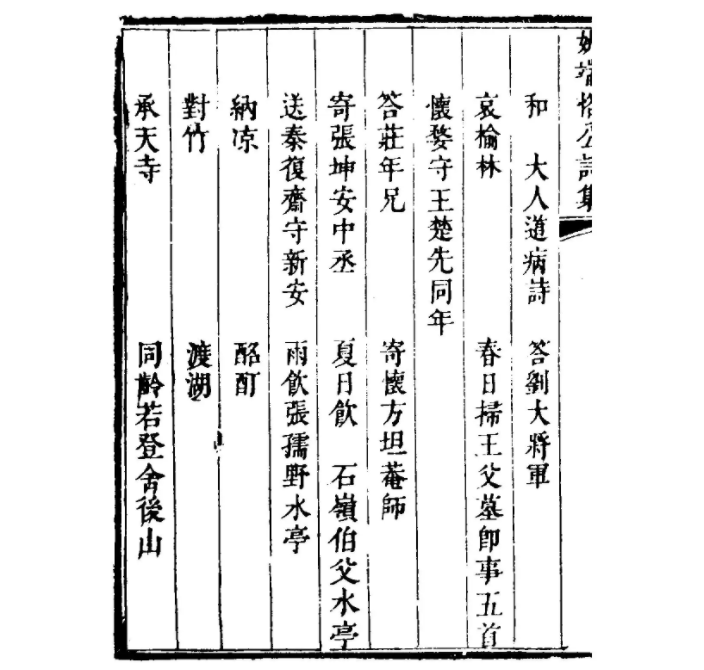 姚端恪公詩集
和　大人道病詩　答劉大將軍
哀榆林　春日掃王父墓即事五首
懷婺守王楚先同年
答莊年兄　寄懷方坦菴師
寄張坤安中丞　夏日飲　石嶺伯父水亭
送秦復齋守新安　雨飲張孺野水亭
納凉　酩酊
對竹　渡湖
承天寺　同齡若登舍後山